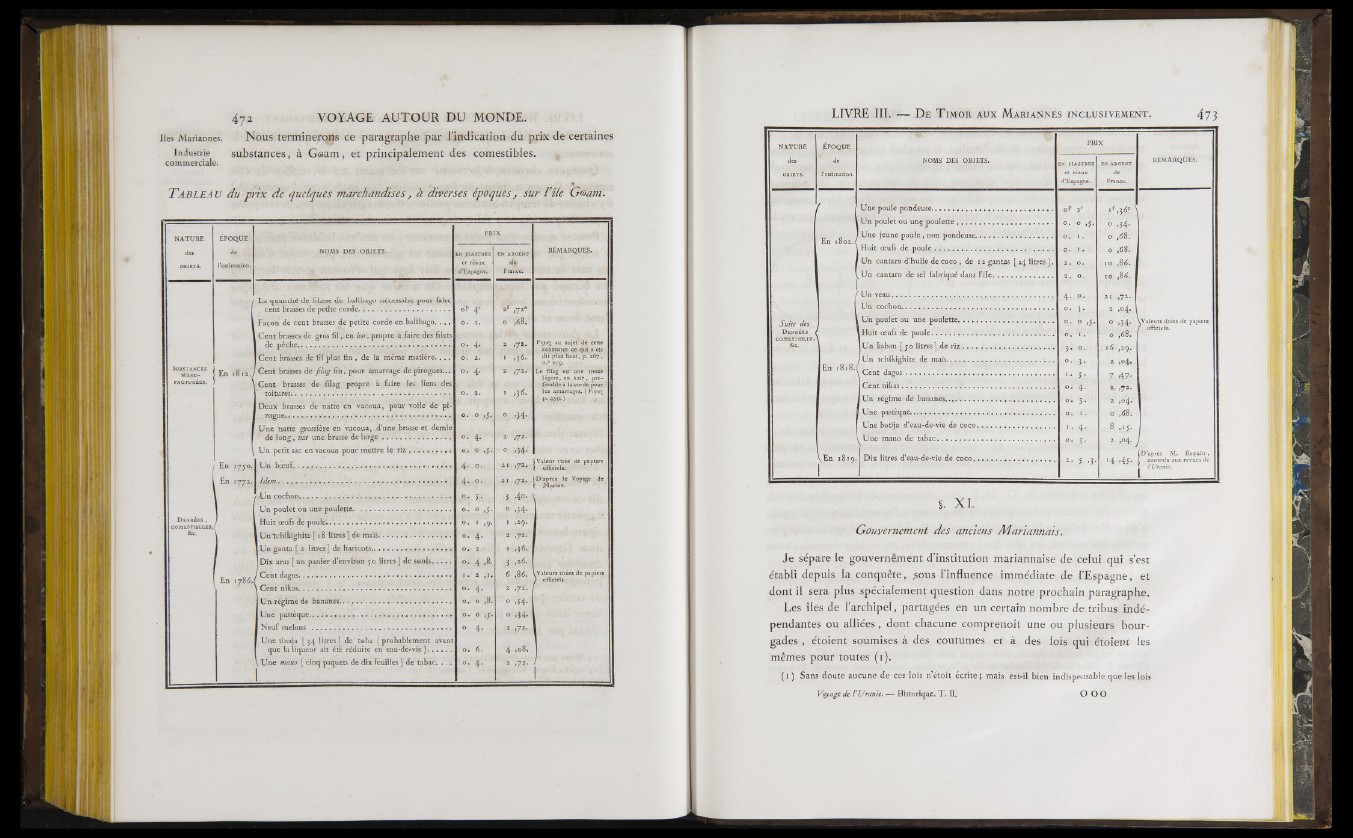 472 VOYAGE AUTOUR DU MONDE.
Iles Mariannes.
Industrie
commerciale.
Nous terminerons ce paragraphe par l'indication du prix de certaines
substances, à Gɷam, et principalement des comestibles.
TABLEAU du prix de quelques marchandises, à diverses époques, sur l'île Gɷam.
NATURE des OBJETS. | ÉPOQUE de l'estimation. | NOMS DES OBJETS. | PRIX EN PIASTRES et réaux d'Espagne. | EN ARGENT de France. | REMARQUES.
SUBSTANCES MANUFACTURÉES.
En 1812.
La quantité de filasse de balibago nécessaire pour faire
cent brasses de petite corde. 0P 4r 2f ,72c
Façon de cent brasses de petite corde en balibago. 0. 1. 0 ,68.
Cent brasses de gros fil, en , propre à faire des filets
de pêche. 0. 4. 2 ,72.
Cent brasses de fil plus fin, de la même matière. 0. 2. 1 ,36.
Cent brasses de filag fin, pour amarrage de pirogues. 0. 4. 2 ,72.
Cent brasses de filag propre à faire les liens des
toitures. 0. 2. 1 ,36.
Deux brasses de natte en vacoua, pour voile de pi-
rogue. 0. 0 ,5. 0 ,34.
Une natte grossière en vacoua, d'une brasse et demie
de long, sur une brasse de large 0. 4. 2 ,72.
Un petit sac en vacoua pour mettre le riz 0. 0 ,5. 0 ,34.
Voyez au sujet de cette
substance ce qui a été
dit plus haut, p. 267,
n.°
Le filag est une tresse
légère, en , pré-
férable à la corde pour
les amarrages. (Voyez
p.
DENRÉES, COMESTIBLES, &c.
En 1750. Un bœuf. 4. 0. 21 ,72. Valeur tirée de papiers
officiels.
En 1772. Idem. 4. 0. 21 ,72. D'après le Voyage de
Marion.
En 1786.
Un cochon. 0. 5. 3 ,40.
Un poulet ou une poulette. 0. 0 ,5. 0 ,34.
Huit œufs de poule. 0. 1 ,9. 1 ,29.
Un tchikighite [18 litres] de maïs. 0. 4. 2 ,72.
Un ganta [2 litres] de haricots. 0. 2. 1 ,36.
Dix aras [un panier d'environ 50 litres] de sounis. 0. 4 ,8. 3 ,26.
Cent dagos. 1. 2 ,1. 6 ,86.
Cent nikas. 0. 4. 2 ,72.
Un régime de bananes. 0. 0 ,8. 0 ,54.
Une pastèque. 0. 0 ,5. 0 ,34.
Neuf melons 0 4. 2 ,72.
Une tinaja [34 litres] de tuba [probablement avant
que la liqueur ait été réduite en eau-de-vie]. 0. 6. 4 ,08.
Une mano [cinq paquets de dix feuilles] de tabac. 0. 4. 2 ,72.
Valeurs tirées de papiers
officiels.
LIVRE III. — DE TIMOR AUX MARIANNES INCLUSIVEMENT. 473
NATURE des OBJETS. | ÉPOQUE de l'estimation. | NOMS DES OBJETS. | PRIX EN PIASTRES et réaux d'Espagne. | EN ARGENT de France. | REMARQUES.
Suite des DENRÉES COMESTIBLES, &c.
En 1802.
Une poule pondeuse. 0P 2r 1f,36c
Un poulet ou une poulette 0. 0 ,5. 0 ,34.
Une jeune poule, non pondeuse. 0. 1. 0 ,68.
Huit œufs de poule 0. 1. 0 ,68.
Un cantaro d'huile de coco, de 12 gantas [24 litres]. 2. 0. 10 ,86.
Un cantaro de sel fabriqué dans l'île. 2. 0. 10 ,86.
En 1818.
Un veau. 4. 0. 21 ,72.
Un cochon. 0. 3. 2 ,04.
Un poulet ou une poulette. 0. 0 ,5. 0 ,34.
Huit œufs de poule 0. 1. 0 ,68.
Un kabon [50 litres] de riz 3. 0. 16 ,29.
Un tchikighite de maïs 0. 3. 2 ,04.
Cent dagos 1. 3. 7 ,47.
Cent nikas 0. 4. 2 ,72.
Un régime de bananes. 0. 3. 2 ,04.
Une pastèque. 0. 1. 0 ,68.
Une botija d'eau-de-vie de coco 1. 4. 8 ,15.
Une mano de tabac. 0. 3. 2 ,04.
Valeurs tirées de papiers
officiels.
En 1819. Dix litres d'eau-de-vie de coco. 2. 5 ,3. 14 ,45. D'après M. ,
commis aux revues de
l'Uranie.
§. XI.
Gouvernement des anciens Mariannais.
Je sépare le gouvernement d'institution mariannaise de celui qui s'est
établi depuis la conquête, sous l'influence immédiate de l'Espagne, et
dont il sera plus spécialement question dans notre prochain paragraphe.
Les îles de l'archipel, partagées en un certain nombre de tribus indé-
pendantes ou alliées, dont chacune comprenoit une ou plusieurs bour-
gades, étoient soumises à des coutumes et à des lois qui étoient les
mêmes pour toutes (1).
(1) Sans doute aucune de ces lois n'étoit écrite; mais est-il bien indispensable que les lois
Voyage de l'Uranie. — Historique. T. II. OOO